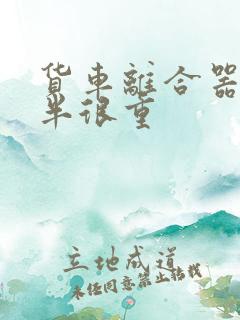 货车離合器
半很重
立地成道
未经同意禁止转载